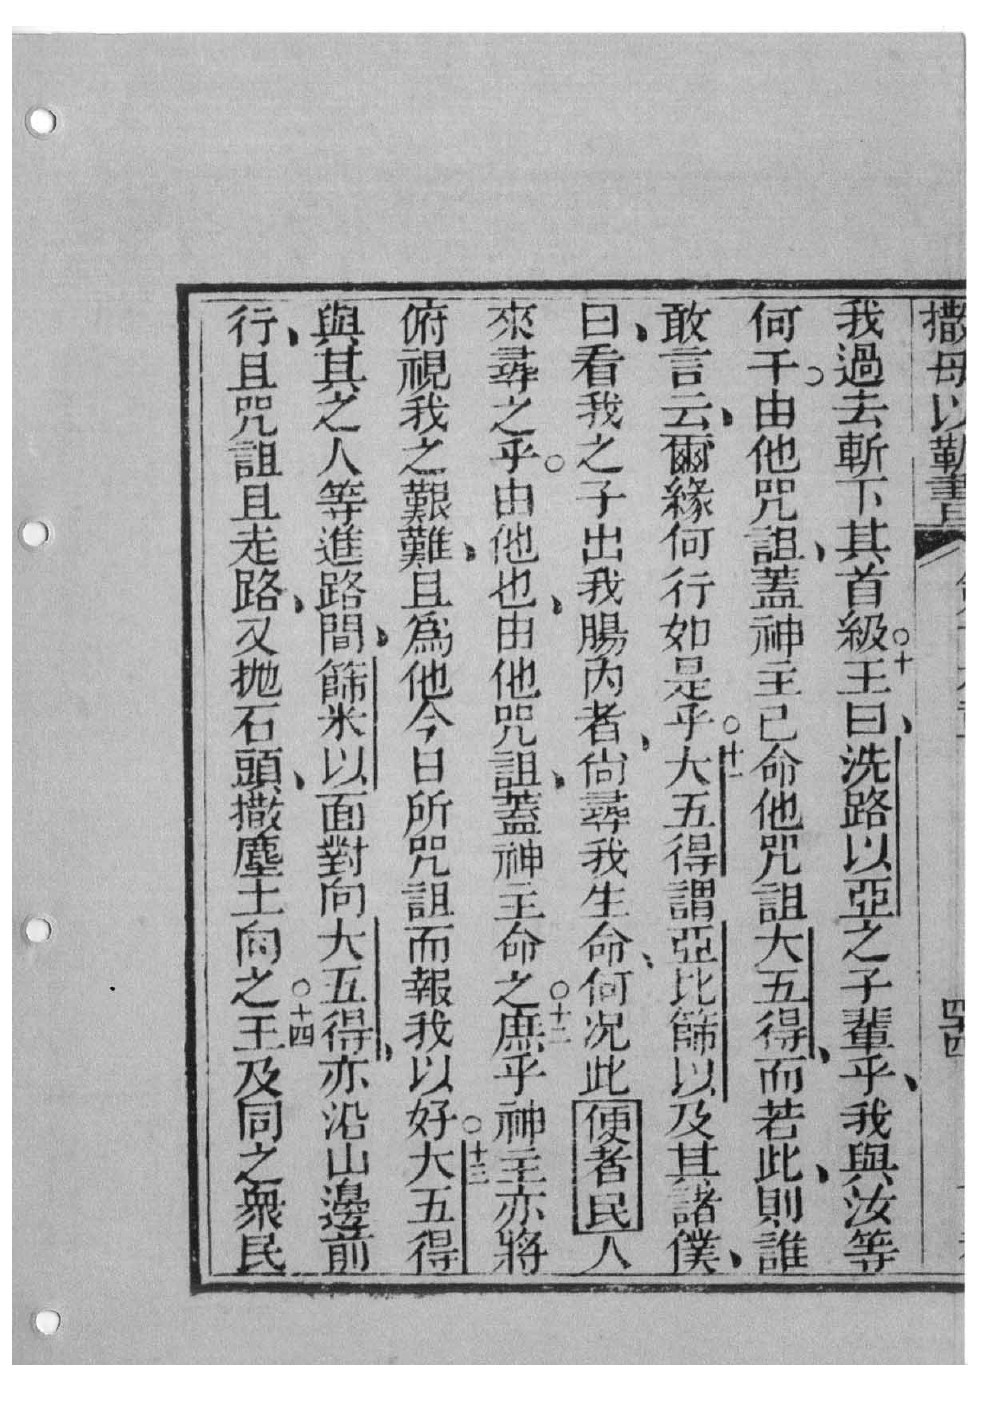 撒母以勒書
我過去斬下其首級○十王曰洗路以亞之子輩乎我與汝等
何干○由他咒詛蓋神主已命他咒詛大五得而若此則誰
敢言云爾緣何行如是乎○十一大五得謂亞比篩以及其諸僕
曰看我之子出我腸內者尙尋我生命何况此便者民人
來尋之乎○由他也由他咒詛蓋神主命之○十二庶乎神主亦將
俯視我之艱難且爲他今日所咒詛而報我以好○十三大五得
與其之人等進路間篩米以面對向大五得亦沿山邊前
行且咒詛且走路又抛石頭撒塵土向之○十四王及同之衆民